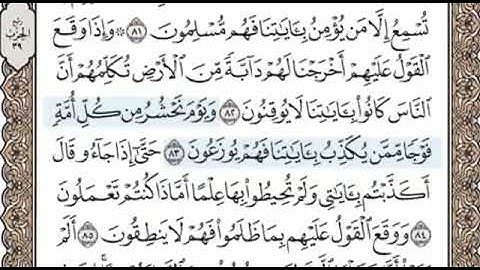 ربع
الحزب
٣٩
تُسْمِعُ إِلَّا مَن يُؤْمِنُ بِـَٔايَٰتِنَا فَهُم مُّسْلِمُونَ ٨١ ۞ وَإِذَا وَقَعَ
ٱلْقَوْلُ عَلَيْهِمْ أَخْرَجْنَا لَهُمْ دَآبَّةً مِّنَ ٱلْأَرْضِ تُكَلِّمُهُمْ أَنَّ
ٱلنَّاسَ كَانُوا۟ بِـَٔايَٰتِنَا لَا يُوقِنُونَ ٨٢ وَيَوْمَ نَحْشُرُ مِن كُلِّ أُمَّةٍ
فَوْجًا مِّمَّن يُكَذِّبُ بِـَٔايَٰتِنَا فَهُمْ يُوزَعُونَ ٨٣ حَتَّىٰٓ إِذَا جَآءُو قَالَ
أَكَذَّبْتُم بِـَٔايَٰتِى وَلَمْ تُحِيطُوا۟ بِهَا عِلْمًا أَمَّاذَا كُنتُمْ تَعْمَلُونَ
٨٤ وَوَقَعَ ٱلْقَوْلُ عَلَيْهِم بِمَا ظَلَمُوا۟ فَهُمْ لَا يَنطِقُونَ ٨٥ أَلَمْ